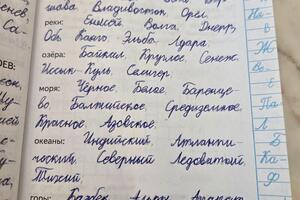 шава, Владивосток, Орёл.
реки: Енисей, Волга, Днепр,
Обь, Конго, Эльба, Ладра
озёра: Байкал, Круглое, Сенеж,
Иссык-Куль, Селигер.
моря: Чёрное, Белое, Баренце-
во, Балтийское, Средиземное,
Красное, Азовское.
океаны: Индийский, Атланти-
ческий, Северный Ледовитый,
Тихий.
горы: Казбек, Альпы,